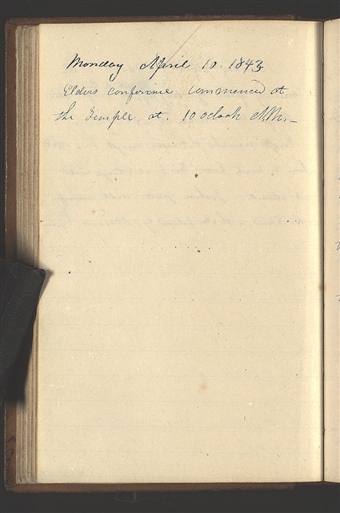 Monday April 10. 1843
Elders conference commenced at
the Temple at. 10 oclock A.M.—